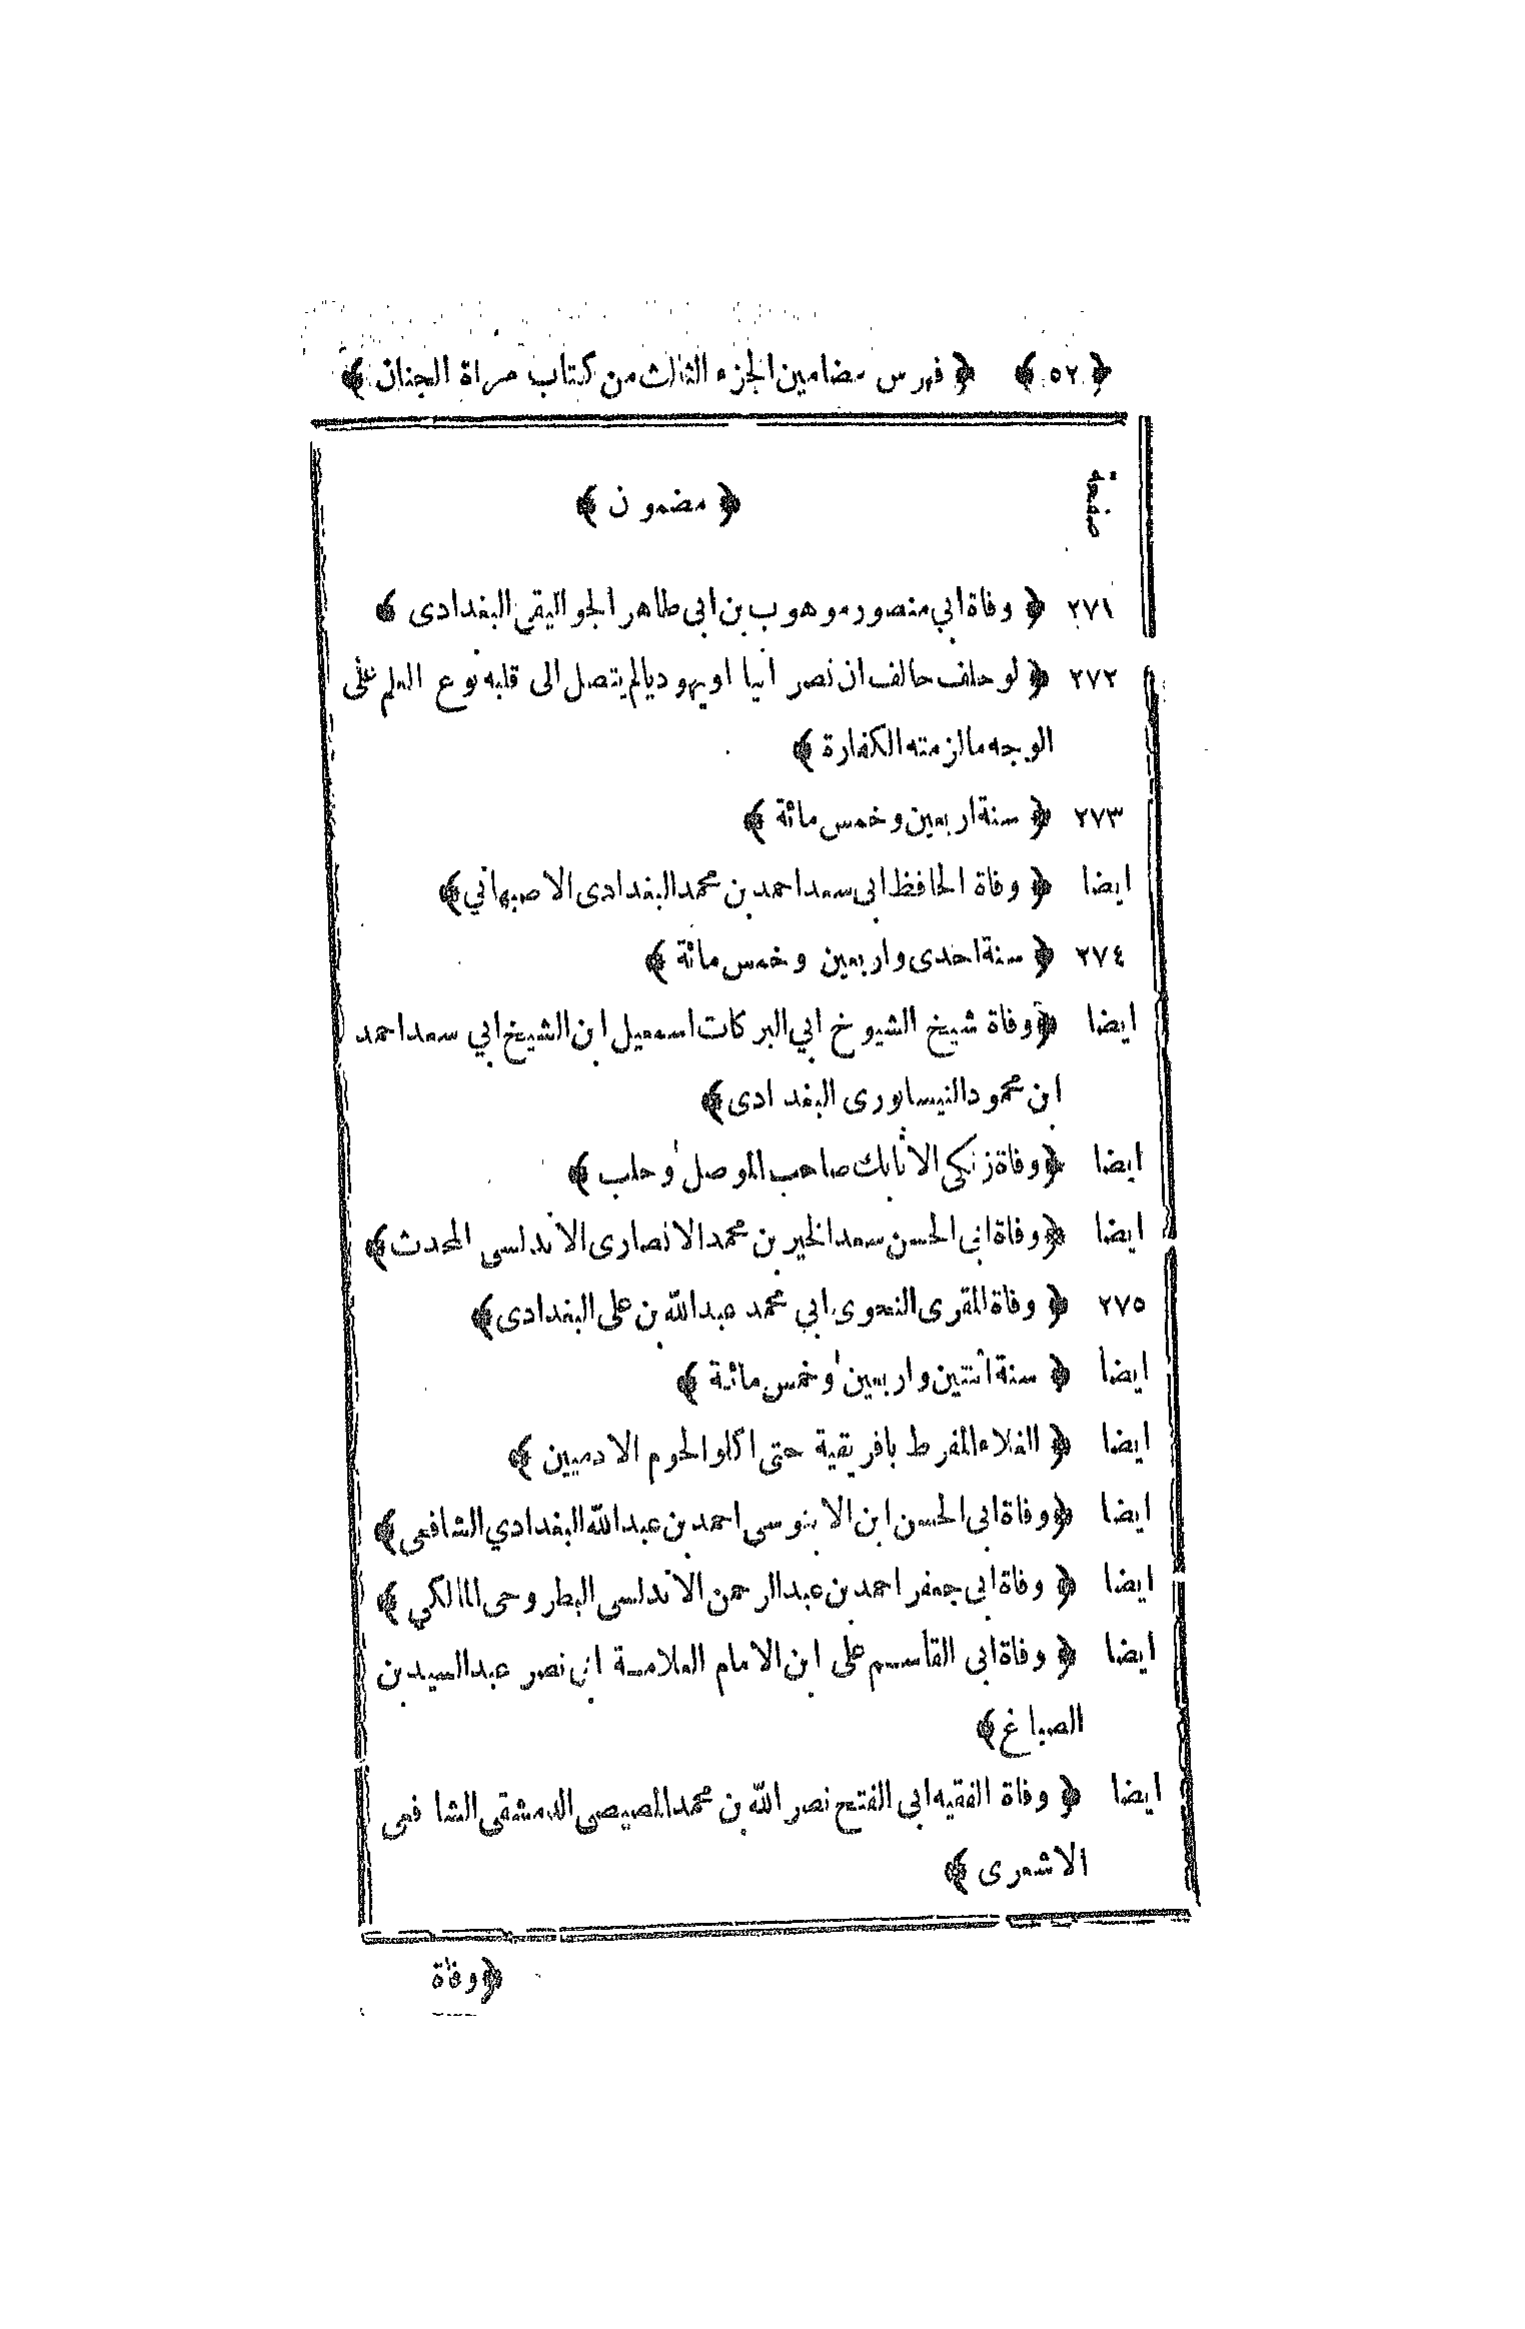 ﴿ ٥٢ ﴾ ﴿ فهرس مضامين الجزء الثالث من كتاب مرأة الجنان ﴾
صفحة ﴿ مضمون ﴾
٢٧١ ﴿ وفاة ابي منصور موهوب بن ابي طاهر الجواليقي البغدادى ﴾
٢٧٢ ﴿ لو حلف حالف ان نصرانيا او يهوديا لم يتصل الى قلبه نوع العلم على
الوجه ما لزمته الكفارة ﴾
٢٧٣ ﴿ سنة اربعين وخمس مائة ﴾
ايضا ﴿ وفاة الحافظ ابى سعد احمد بن محمد البغدادى الاصبهاني ﴾
٢٧٤ ﴿ سنة احدى واربعين وخمس مائة ﴾
ايضا ﴿ وفاة شيخ الشيوخ ابي البركات اسمعيل ابن الشيخ ابي سعد احمد
ابن محمود النيسابورى البغدادى ﴾
ايضا ﴿ وفاة زنكى الاتابك صاحب الموصل وحلب ﴾
ايضا ﴿ وفاة ابى الحسن سعد الخير بن محمد الانصارى الاندلسى المحدث ﴾
٢٧٥ ﴿ وفاة المقرى النحوى ابي محمد عبد الله بن على البغدادى ﴾
ايضا ﴿ سنة اثنتين واربعين وخمس مائة ﴾
ايضا ﴿ الغلاء المفرط بافريقية حتى اكلوا لحوم الادميين ﴾
ايضا ﴿ وفاة ابى الحسن ابن الابنوسى احمد بن عبد الله البغدادي الشافعى ﴾
ايضا ﴿ وفاة ابي جعفر احمد بن عبد الرحمن الاندلسى البطروحى المالكي ﴾
ايضا ﴿ وفاة ابى القاسم على ابن الامام العلامة ابى نصر عبد السيد بن
الصباغ ﴾
ايضا ﴿ وفاة الفقيه ابى الفتح نصر الله بن محمد المصيصى الدمشقى الشافعى
الاشعرى ﴾
﴿ وفاة